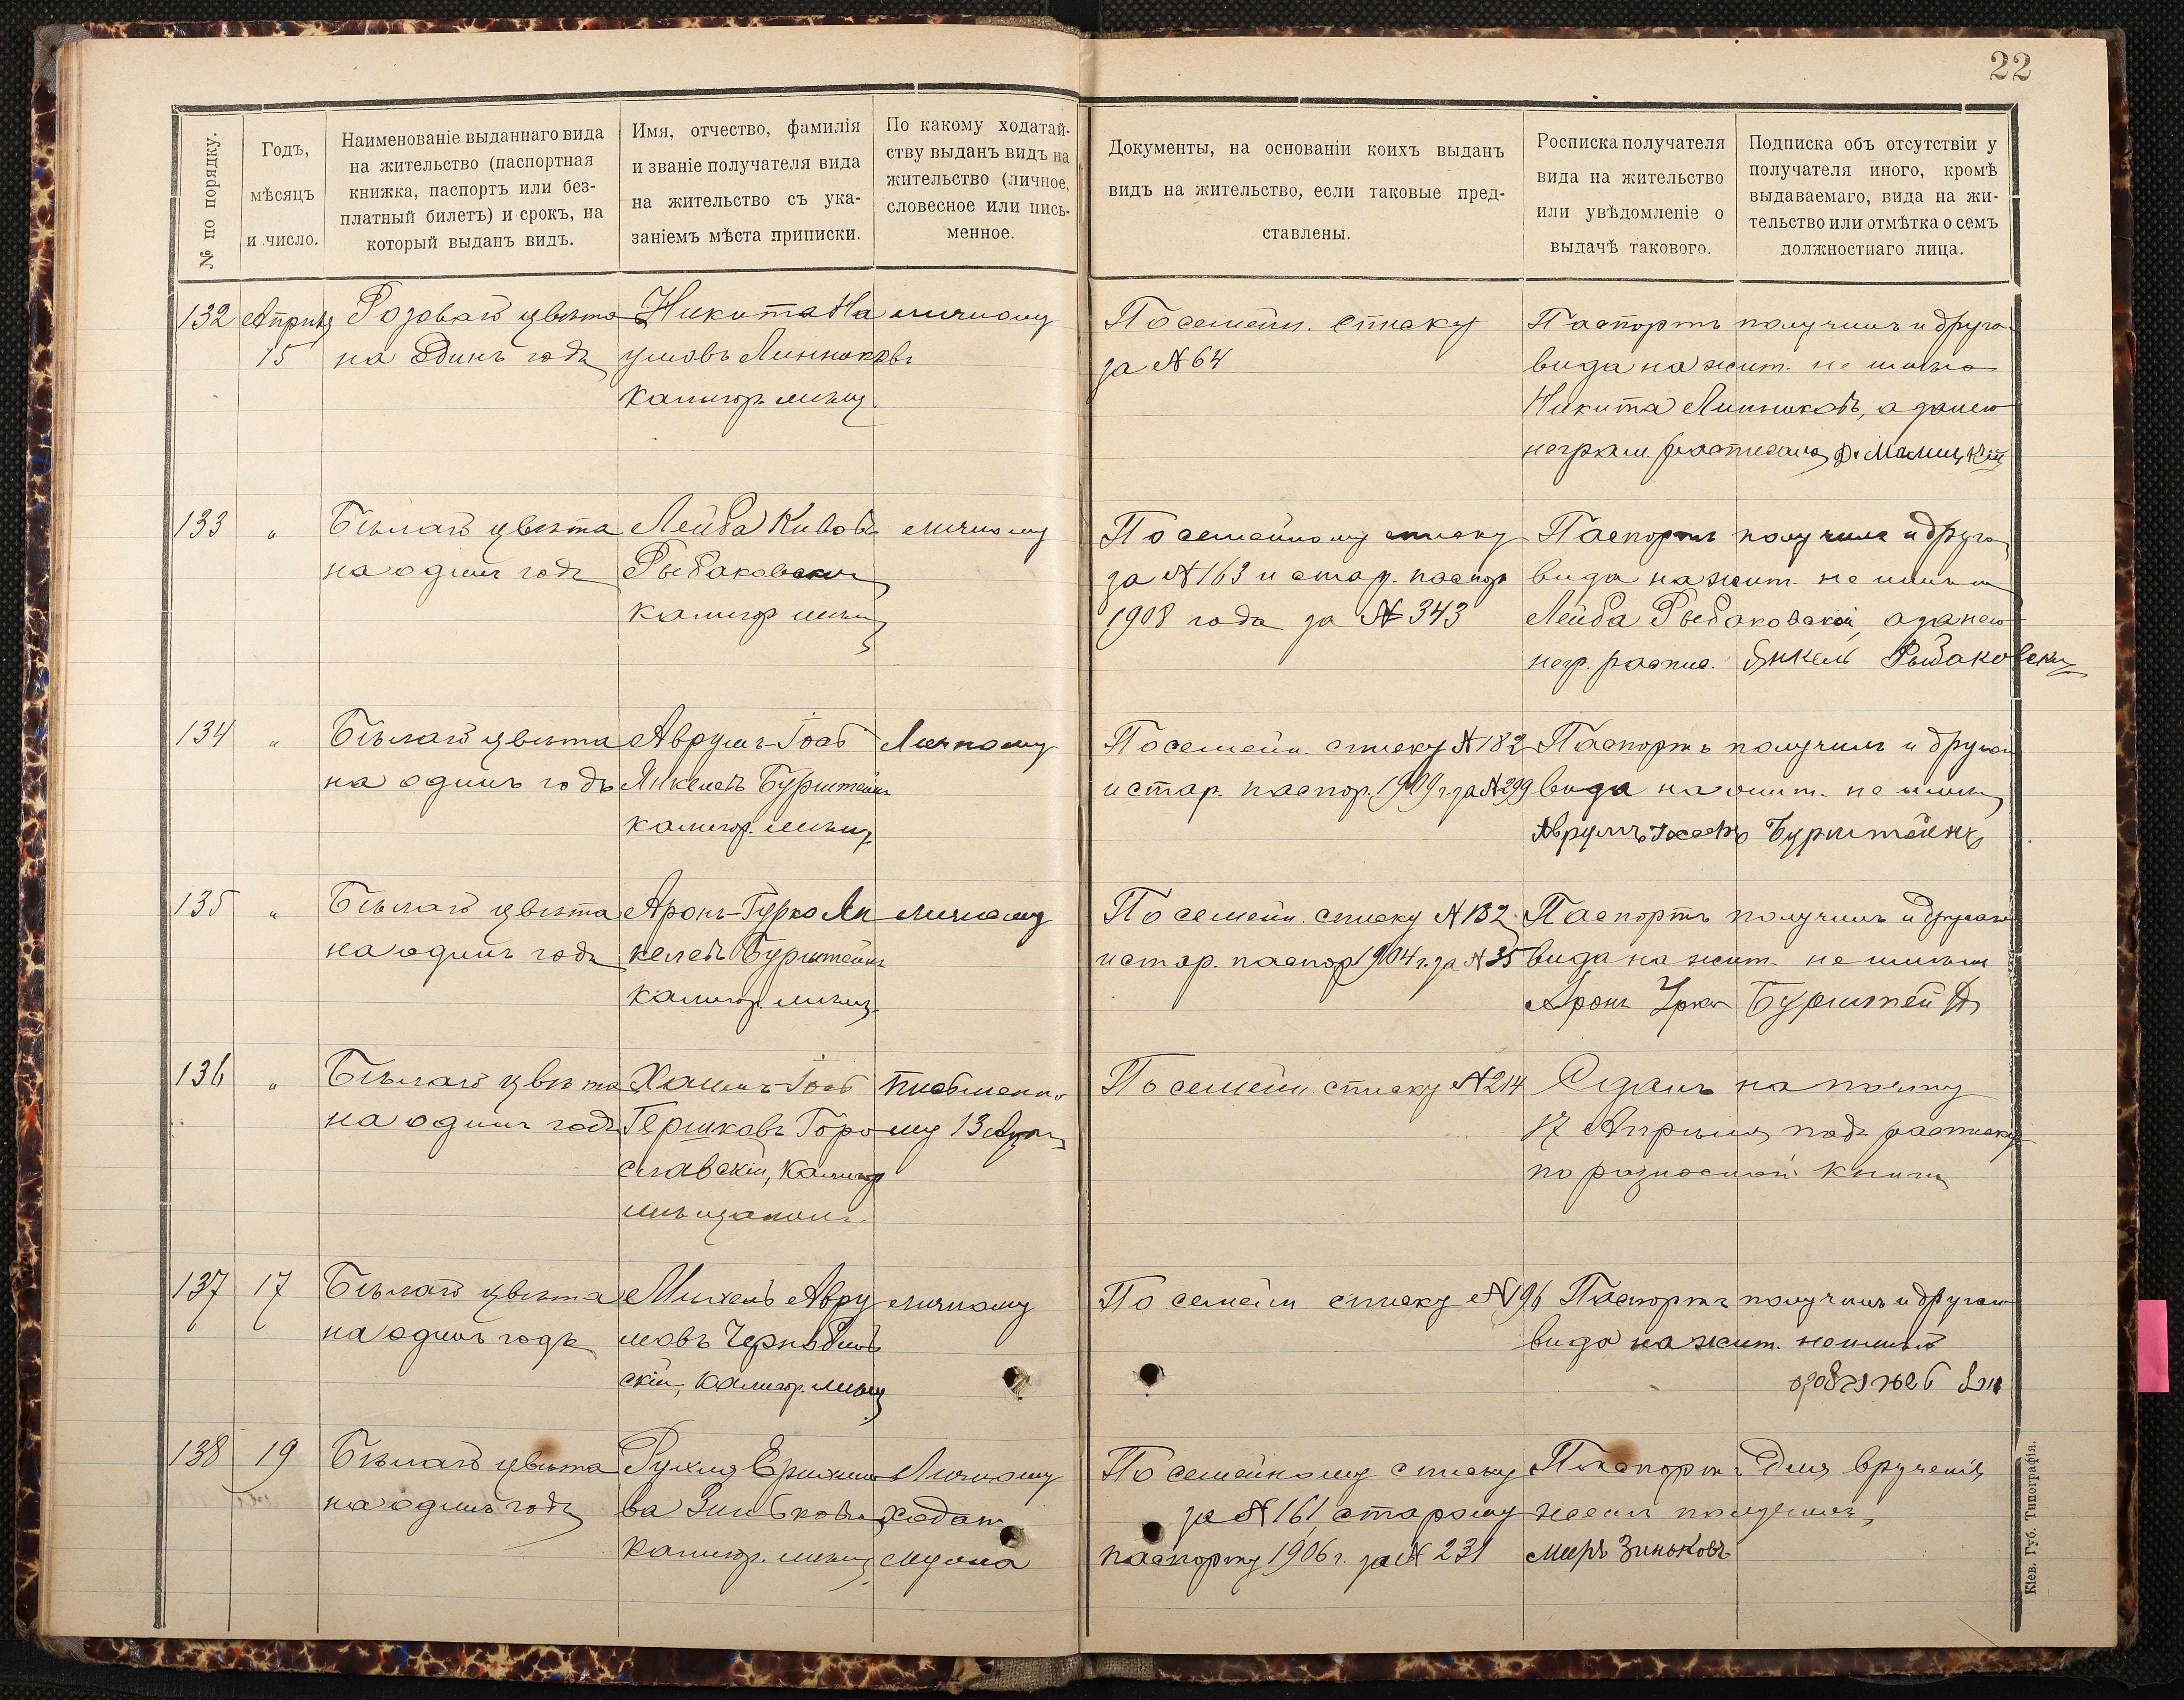 22
№ по порядку.
Годъ,
мѣсяцъ
и число.
Наименованіе выданнаго вида
на жительство (паспортная
книжка, паспортъ или без-
платный билетъ) и срокъ, на
который выданъ видъ.
Имя, отчество, фамилія
и званіе получателя вида
на жительство съ ука-
заніемъ мѣста приписки.
По какому ходатай-
ству выданъ видъ на
жительство (личное,
словесное или пись-
менное.
Документы, на основаніи коихъ выданъ
видъ на жительство, если таковые пред-
ставлены.
Росписка получателя
вида на жительство
или увѣдомленіе о
выдачѣ такового.
Подписка объ отсутствіи у
получателя иного, кромѣ
выдаваемаго, вида на жи-
тельство или отмѣтка о семъ
должностнаго лица.
132 Апрѣля Розоваго цвѣта Никита На личному По семейн. списку Паспортъ получилъ и друго
15 на одинъ годъ умовъ Линниковъ за № 64 вида на жит. не имѣю
Калигор. мѣщ. Никита Линниковъ, а за него
неграм. расписался
133 " Бѣлаго цвѣта Лейба Кивовъ личному По семейному списку Паспортъ получилъ и друго
на одинъ годъ Рыбаковскій за № 163 и стар. паспор. вида на жит. не имѣю
калигор мѣщ 1908 года за № 343 Лейба Рыбаковскій, а за него
негр. распис. Янкель Рыбаковски
134 " Бѣлаго цвѣта Аврумъ-Іосъ Личному По семейн. списку № 182 Паспортъ получилъ и другаго
на одинъ годъ Янкелевъ Бурштейнъ и стар. паспор. 1909 г. за № 299 вида на жит. не имѣю
калигор. мѣщ. Аврумъ Бурштейнъ
135 " Бѣлаго цвѣта Аронъ-Гурко Ян личному По семейн. списку № 182 Паспортъ получилъ и другаго
на одинъ годъ келевъ Бурштейнъ и стар. паспор 1904 г. за № 35 вида на жит. не имѣю
калигор. мѣщ. Аронъ Урко Бурштейнъ
136 " Бѣлаго цвѣта Хаимъ-Іосъ Письменно По семейн. списку № 214 Сданъ на почту
на одинъ годъ Гершковъ Горо му 13 Апр. 17 Апрѣля подъ расписку
славскій, Калигор по разносной книги
мѣщанинъ
137 17 Бѣлаго цвѣта Михель Авру личному По семейн списку № 196 Паспортъ получилъ и другаго
на одинъ годъ мовъ вида на жит. не имѣю
скій, калигор. мѣщ
138 19 Бѣлаго цвѣта Рухля Личному По семейному списку Паспортъ для врученія
на одинъ годъ ва Зинькова ходат. за № 161 старому женѣ получилъ,
калигор. мѣщ мужа паспорту 1906 г. за № 231 Меиръ Зиньковъ
Кіев. Губ. Типографія.